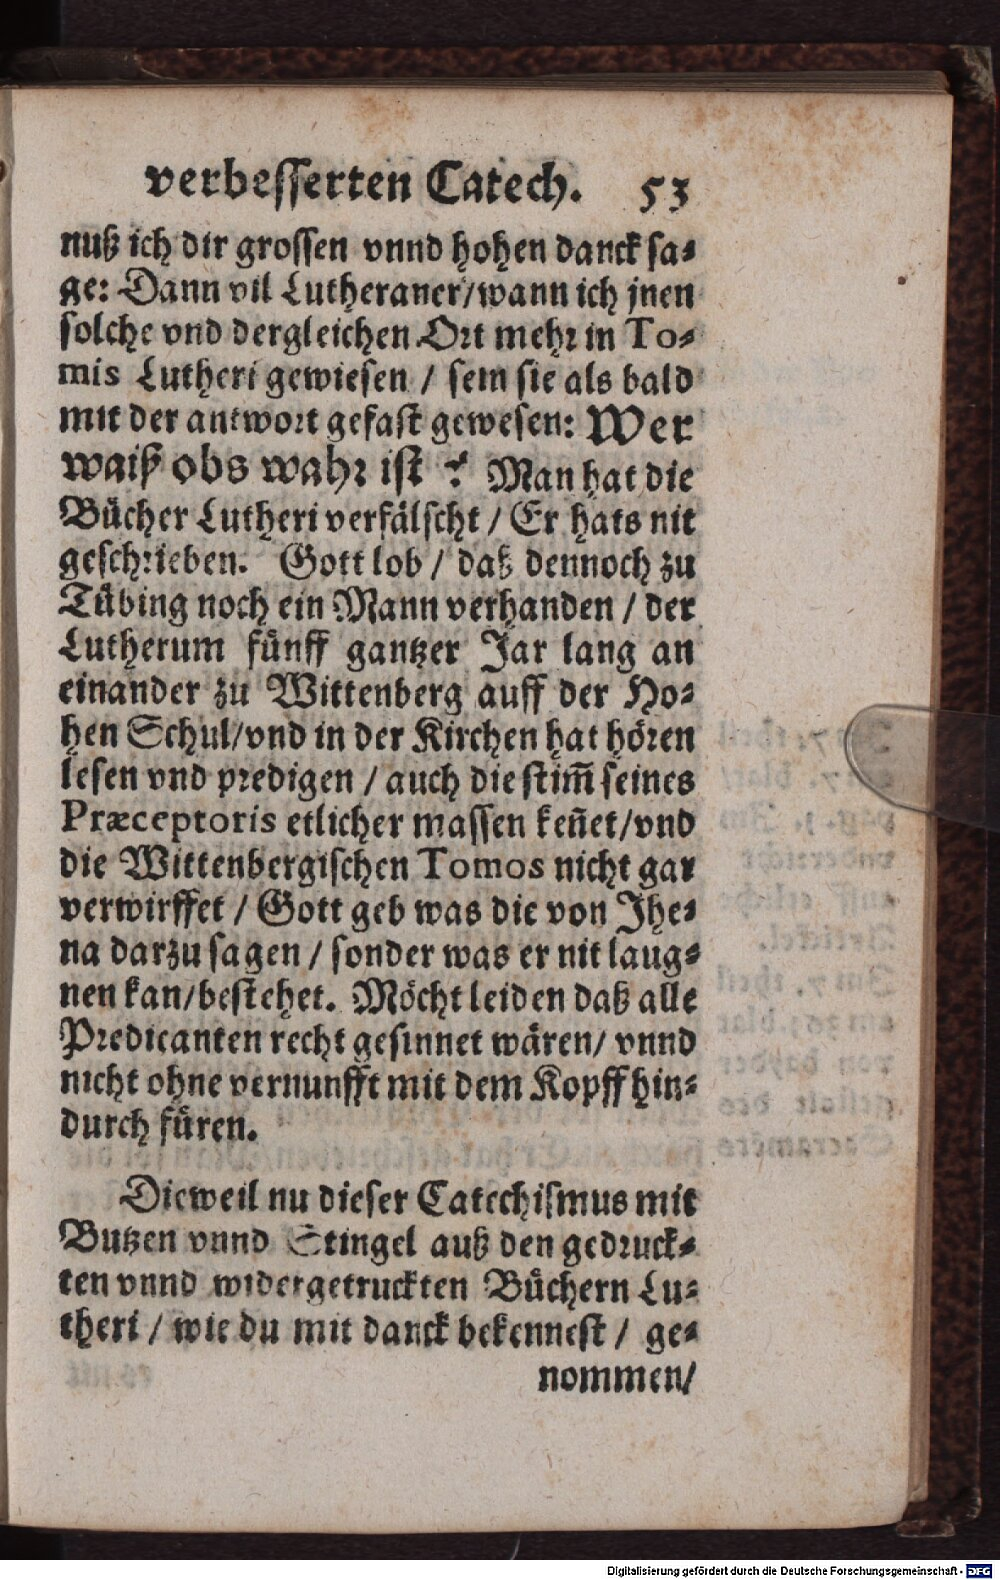 verbesserten Catech. 53
nuß ich dir grossen vnnd hohen danck sa⸗
ge: Dann vil Lutheraner/wann ich jnen
solche vnd dergleichen Ort mehr in To⸗
mis Lutheri gewiesen / sein sie als bald
mit der antwort gefast gewesen: Wer
waiß obs wahr ist ? Man hat die
Bücher Lutheri verfälscht / Er hats nit
geschrieben. Gott lob / daß dennoch zu
Tübing noch ein Mann verhanden / der
Lutherum fünff gantzer Jar lang an
einander zu Wittenberg auff der Ho⸗
hen Schul/vnd in der Kirchen hat hören
lesen vnd predigen / auch die stim̃ seines
Præceptoris etlicher massen keñet/vnd
die Wittenbergischen Tomos nicht gar
verwirffet / Gott geb was die von Jhe⸗
na darzu sagen / sonder was er nit laug⸗
nen kan/bestehet. Möcht leiden daß alle
Predicanten recht gesinnet wären/ vnnd
nicht ohne vernunfft mit dem Kopff hin⸗
durch füren.
Dieweil nu dieser Catechismus mit
Butzen vnnd Stingel auß den gedruck⸗
ten vnnd widergetruckten Büchern Lu⸗
theri / wie du mit danck bekennest / ge⸗
nommen/
Digitalisierung gefördert durch die Deutsche Forschungsgemeinschaft - DFG